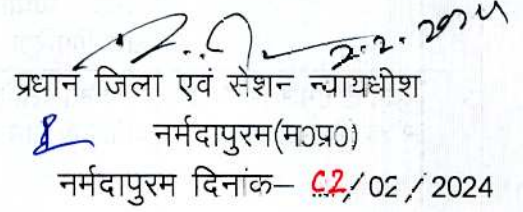 2.2.2024
प्रधान जिला एवं सेशन न्यायधीश
नर्मदापुरम(म0प्र0)
नर्मदापुरम दिनांक– 02/ 02 / 2024